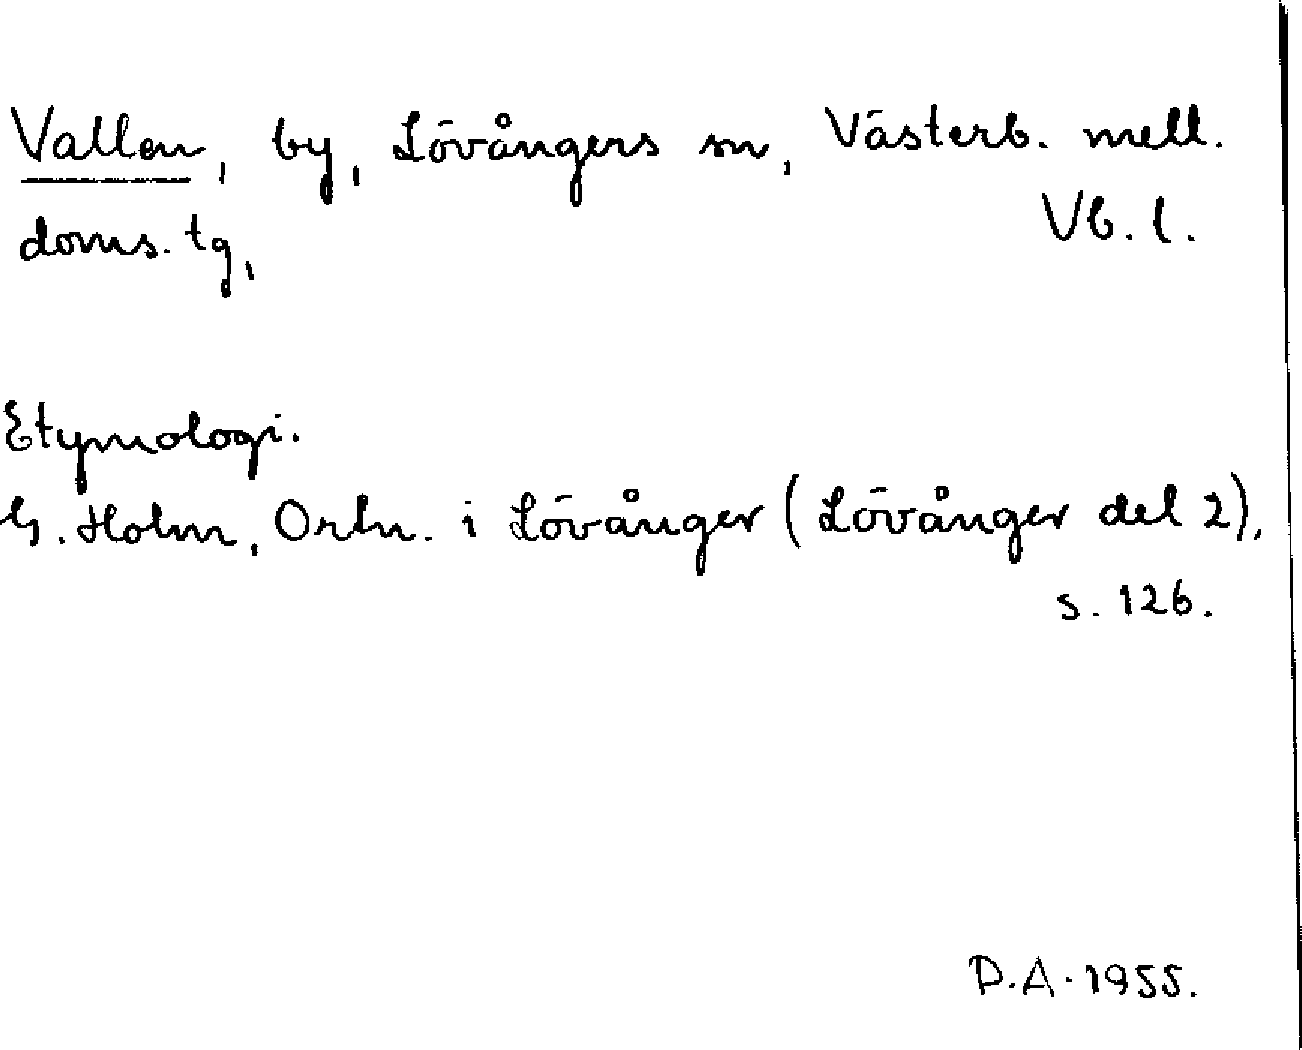 Vallen, by, Lövångers sn, Västerb. mell.
doms. tg, Vb. l.
Etymologi.
G. Holm, Ortn. i Lövånger (Lövånger del 2),
s. 126.
D.A. 1955.